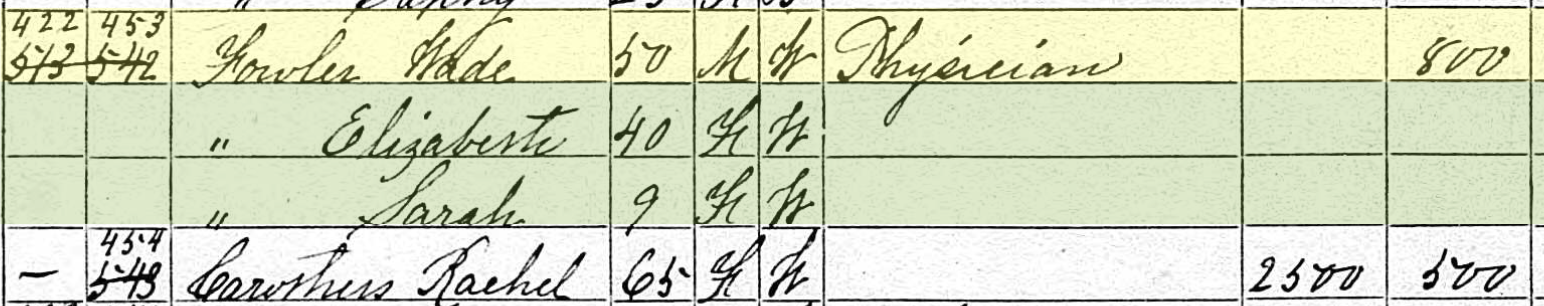 422 453
513 542 Fowler Wade 50 M W Physician 800
" Elizabeth 40 F W
" Sarah 9 F W
454
— 543 Carothers Rachel 65 F W 2500 500